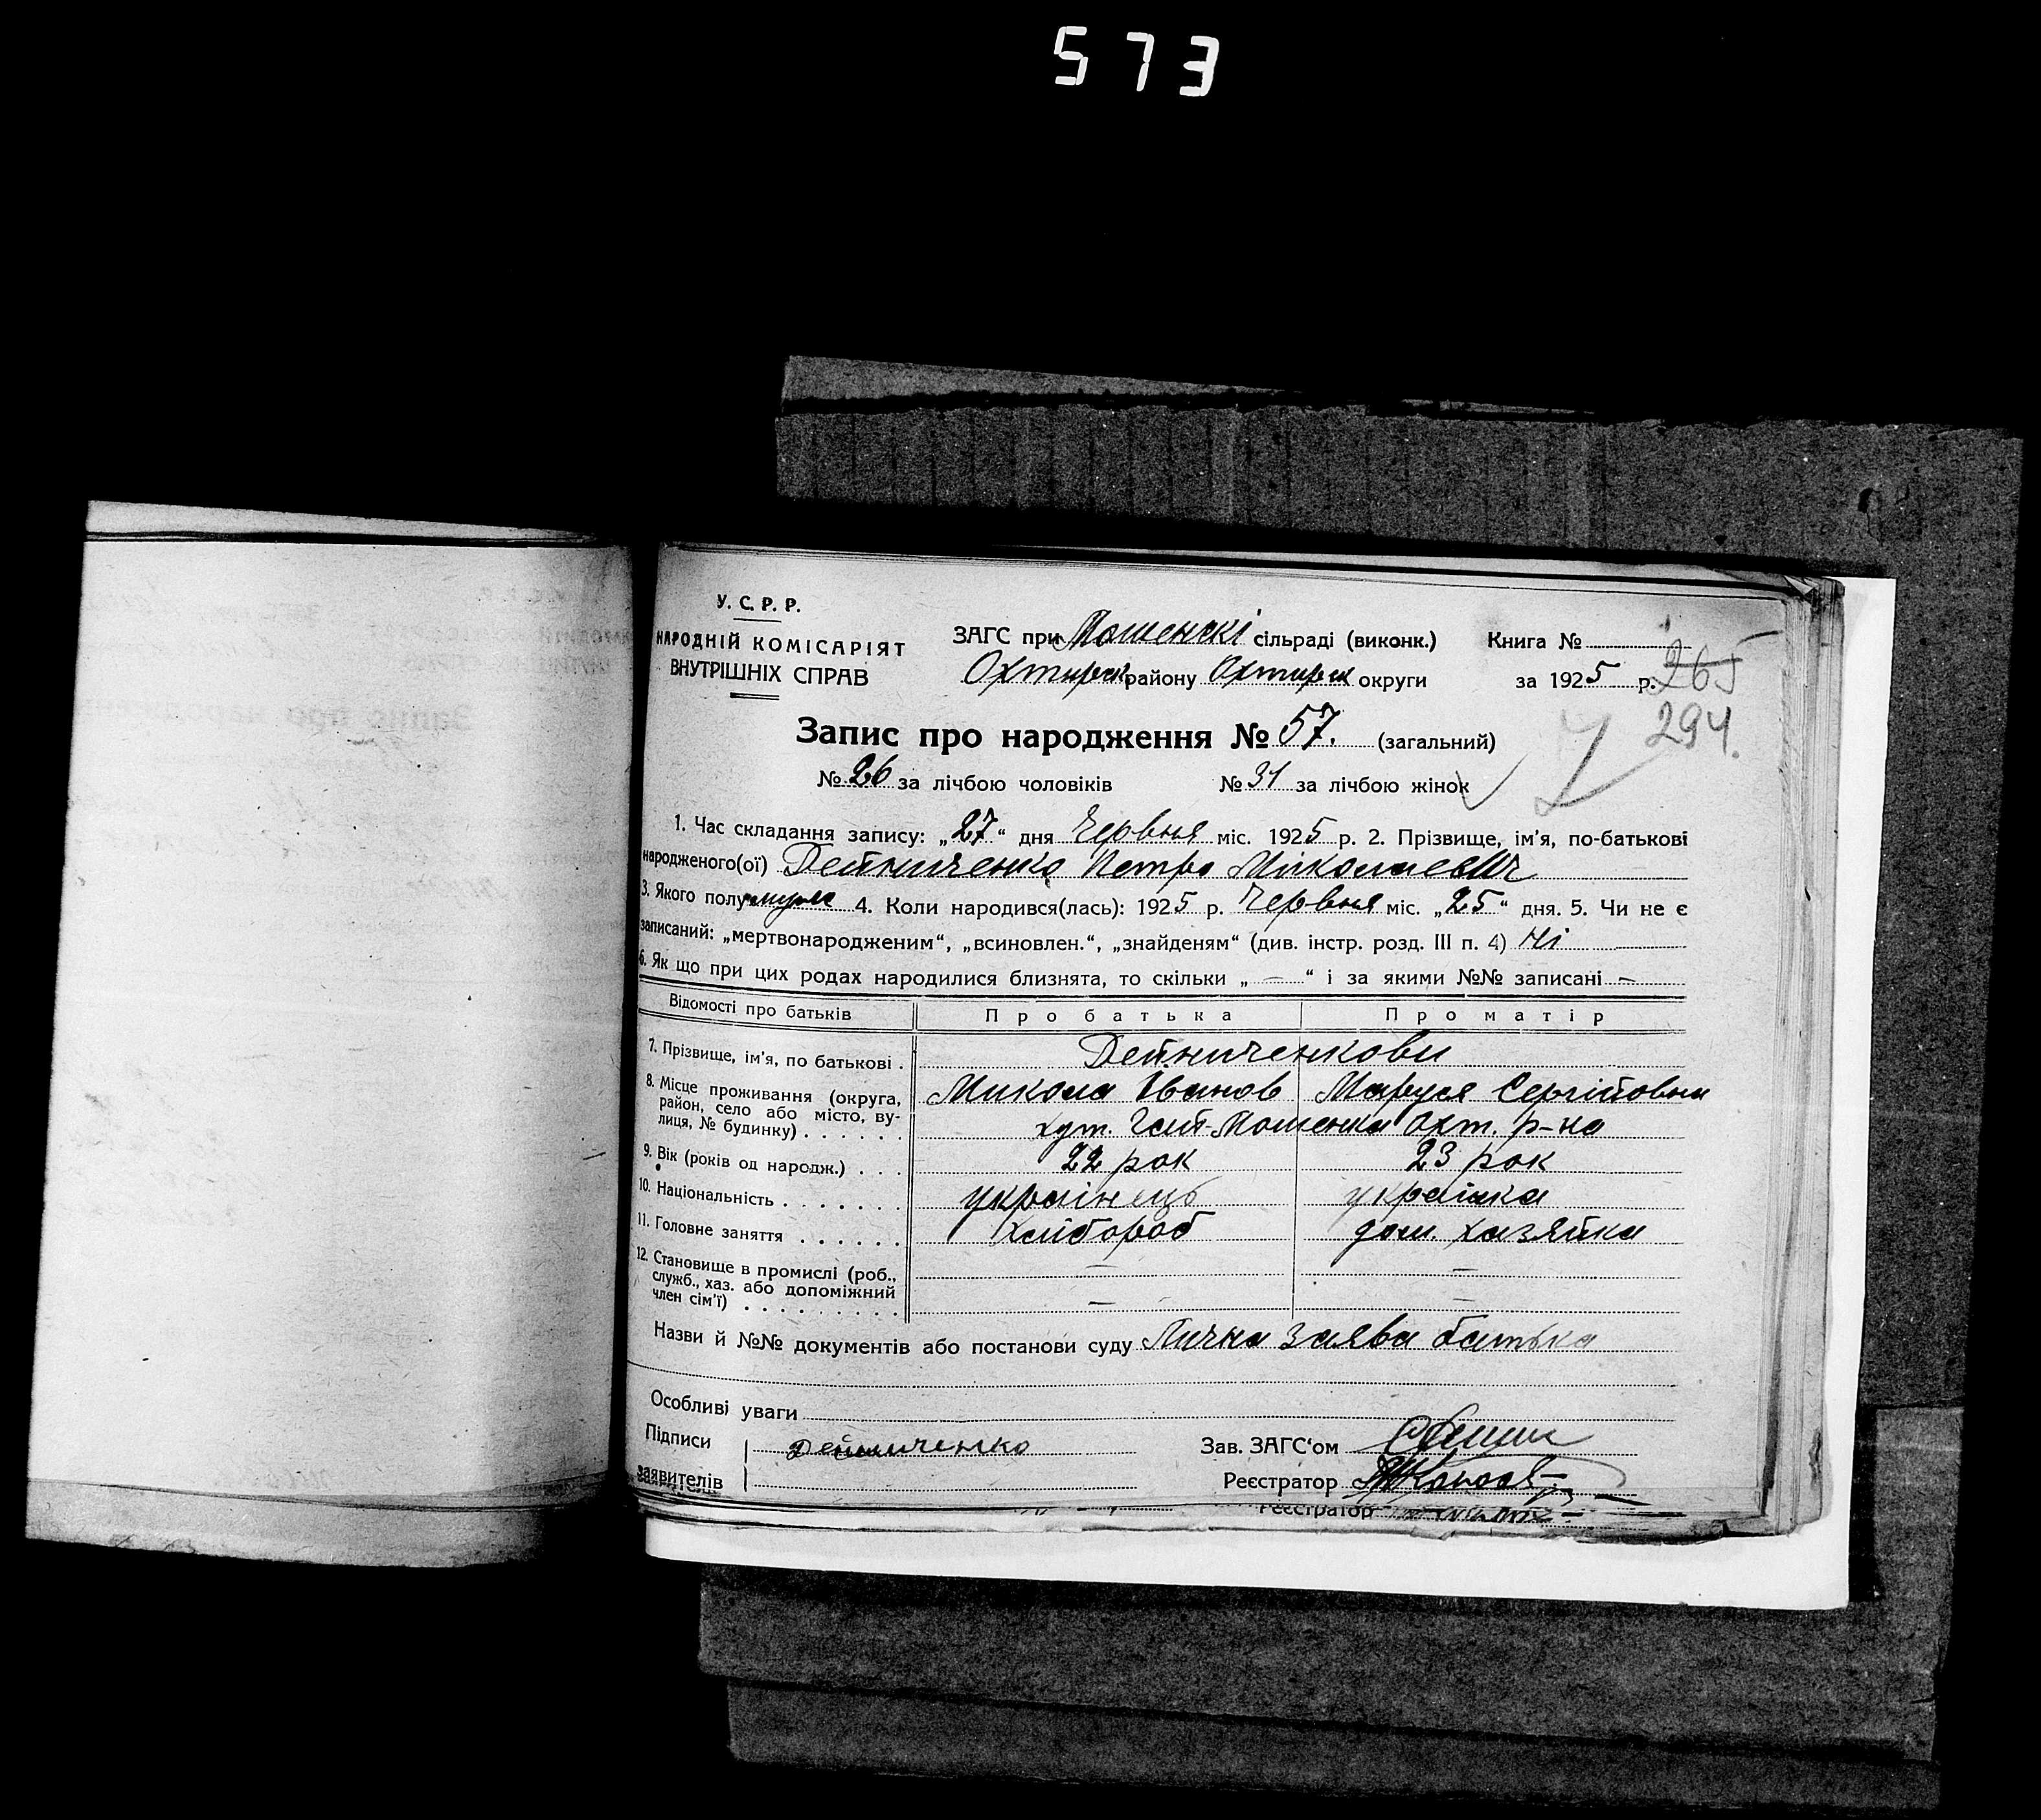 573
У. С. Р. Р.
НАРОДНІЙ КОМІСАРІЯТ
ВНУТРІШНІХ СПРАВ
ЗАГС при Мошенскі сільраді (виконк.) Книга №
Охтирск району Охтирск округи за 1925 р. 265
294.
Запис про народження № 57. (загальний)
№ 26 за лічбою чоловіків № 31 за лічбою жінок
1. Час складання запису: „27“ дня Червня міс. 1925 р. 2. Прізвище, ім’я, по-батькові
народженого(ої) Дейниченко Петро Миколаевич
3. Якого полу муж 4. Коли народився(лась): 1925 р. Червня міс. „25“ дня. 5. Чи не є
записаний: „мертвонародженим“, „всиновлен.“, „знайденям“ (див. інстр. розд. III п. 4) Ні
6. Як що при цих родах народилися близнята, то скільки „—“ і за якими №№ записані —
Відомості про батьків Про батька Про матір
7. Прізвище, ім’я, по батькові . Дейниченкови
8. Місце проживання (округа, Микола Іванов Маруся Сергійовна
район, село або місто, ву-
лиця, № будинку) . . . . . . хут. Гай-Мошенка Охт. р-на
9. Вік (років од народж.) . . . 22 рок 23 рок
10. Національність . . . . . . . українець українка
11. Головне заняття . . . . . . хлібороб дом. хазяйка
12. Становище в промислі (роб., — —
служб., хаз. або допоміжний
член сім’ї) . . . . . . . . . — —
Назви й №№ документів або постанови суду Лична заява батька
Особливі уваги
Підписи Дейниченко Зав. ЗАГС‘ом
заявителів Реєстратор
Реєстратор